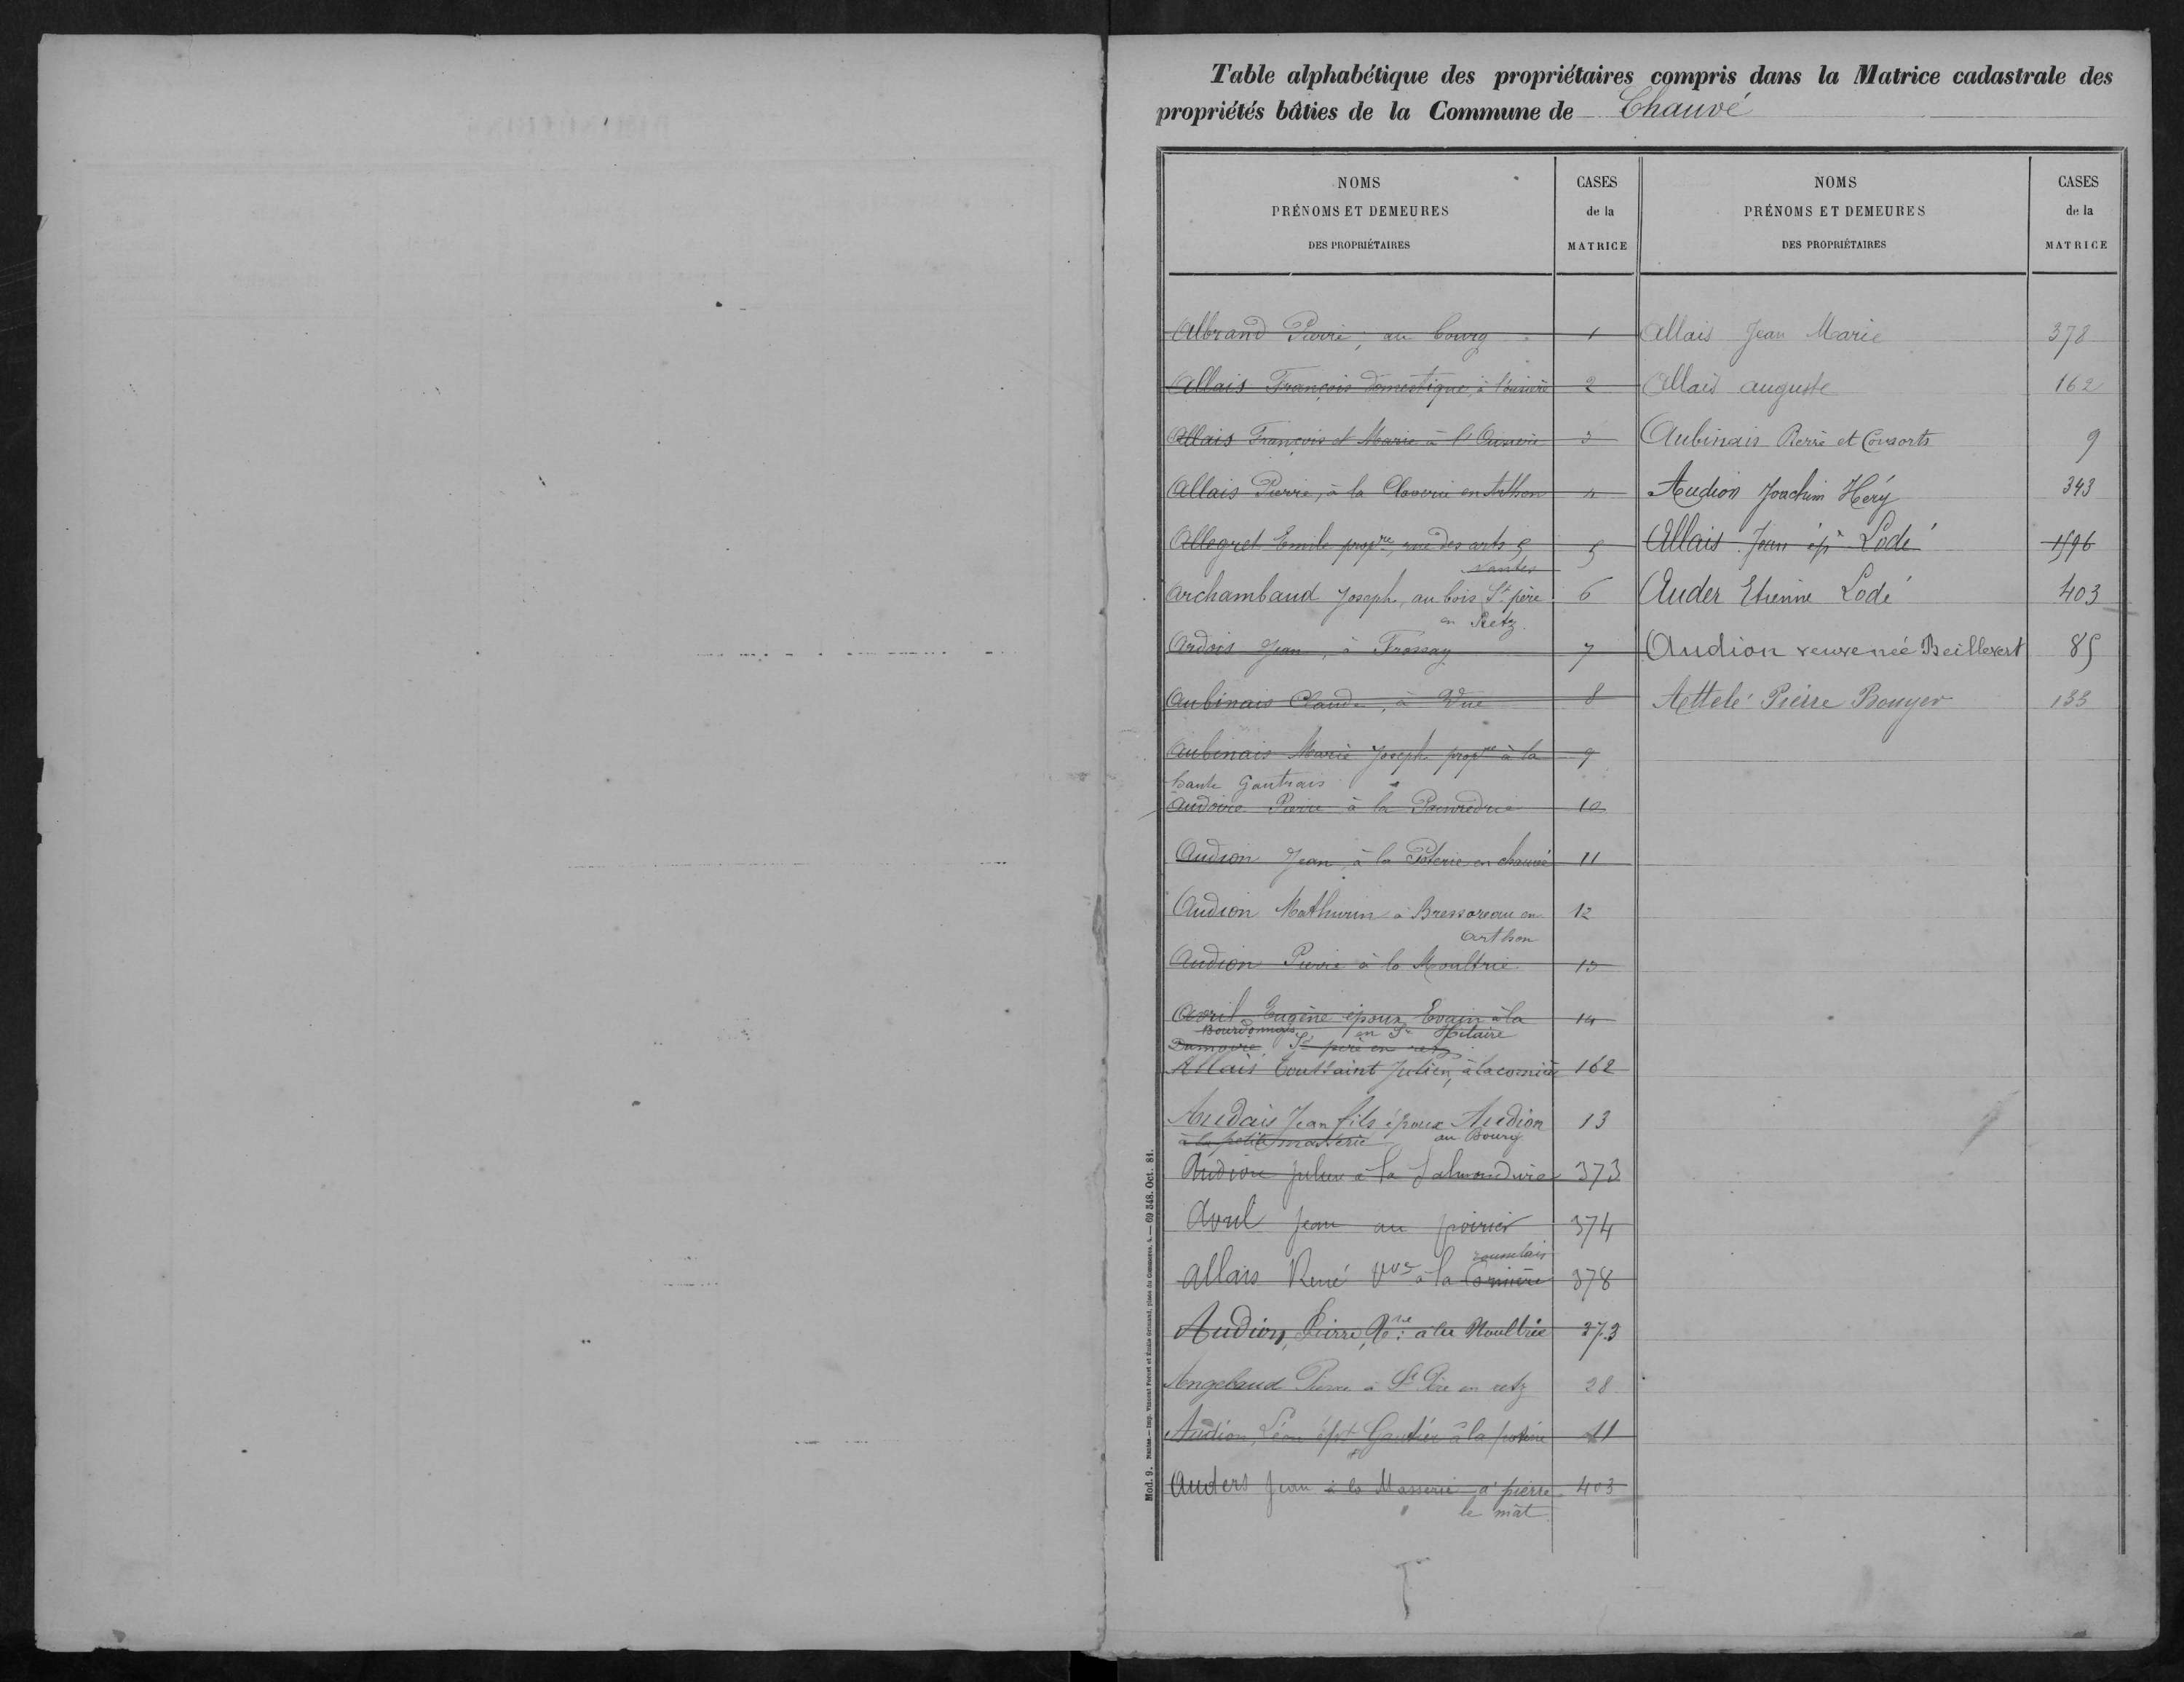 Table alphabétique des propriétaires compris dans la Matrice cadastrale des
propriétés bâties de la Commune de Chauvé
NOMS
PRÉNOMS ET DEMEURES
DES PROPRIÉTAIRES
CASES
de la
MATRICE
Albrand Pierre, au bourg 1
Allais François domestique, à 2
Allais François et Marie à l' 3
Allais Pierre, à la Claverie en Arthon 4
Allegret Emile propre, rue des arts 5 5
Nantes
Archambaud Joseph, au bois St père 6
en Retz.
Ardois Jean, à Frossay 7
Aubinais Claude, à Vue 8
Aubinais Marie Joseph propre à la 9
haute Gautrais
Audoire Pierre à la 10
Audion Jean, à la Poterie en chauvé 11
Audion Mathurin à Bressoreau en 12
Arthon
Audion Pierre à la Moultrie 13
Avril Eugène époux Evain à la 14
Bourdonnais en St Hilaire
St père en retz
Allais Toussaint Julien, à la cornière 162
Audais Jean fils époux Audion 13
à la petite masserie au Bourg
Audion Julien à la 373
Avril Jean au poirier 374
Allais René Vve à la Cornière 378
Audion, Pierre, à la Moultrie 373
Angebaud Pierre à St Père en retz 28
Audion, Léon épx Gautier à la poterie 11
Auders Jean à la Masserie à pierre 403
le mât
NOMS
PRÉNOMS ET DEMEURES
DES PROPRIÉTAIRES
CASES
de la
MATRICE
Allais Jean Marie 378
Allais auguste 162
Aubinais Pierre et Consorts 9
Audion Joachim Héry 343
Allais Jean ép Lodé 1596
Auder Etienne Lodé 403
Audion veuve née Beillevert 85
Attelé Pierre Bouyer 133
Mod. 9. Nantes.— Imp. Vincent Forest et Émile Grimaud, place du Commerce, 4. — 69 348. Oct. 81.